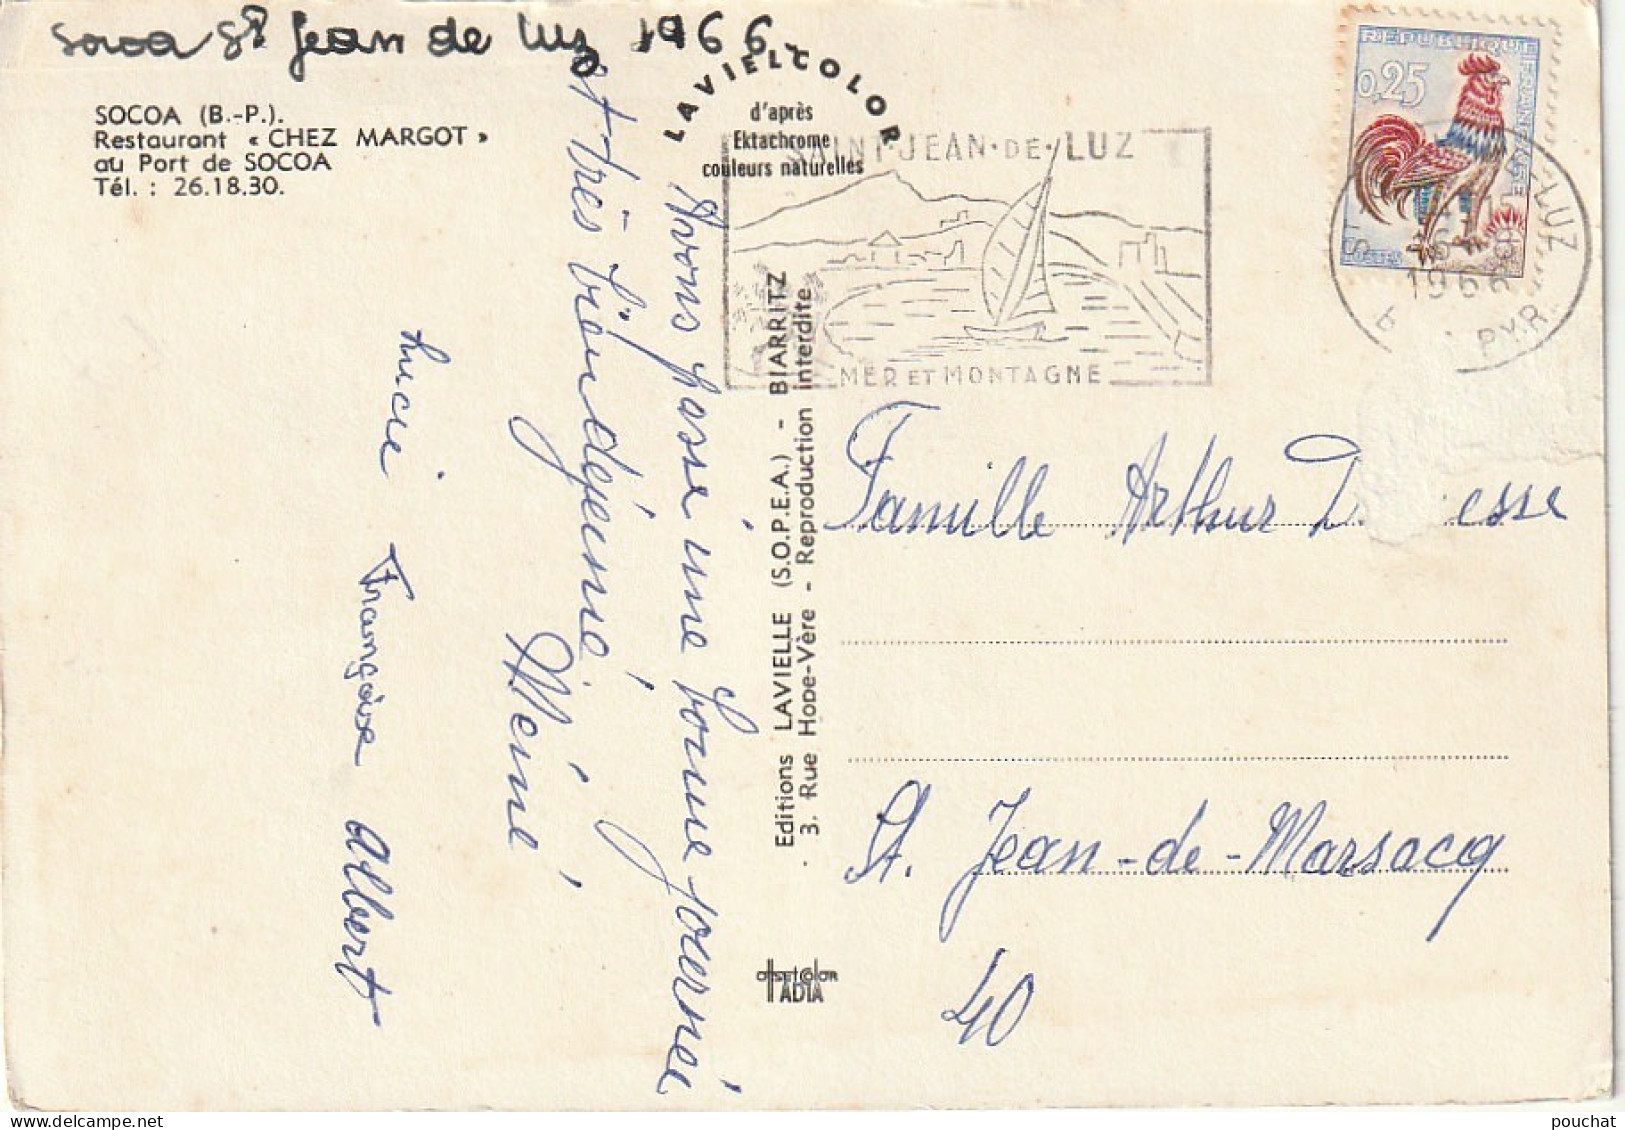 Socoa St Jean de Luz 1966
SOCOA (B.-P.).
Restaurant « CHEZ MARGOT »
au Port de SOCOA
Tél. : 26.18.30.
LAVIELCOLOR
d'après
Ektachrome
couleurs naturelles
SAINT-JEAN-DE-LUZ
MER ET MONTAGNE
REPUBLIQUE FRANÇAISE
0,25
POSTES
LUZ
1966
PYR.
Avons passé une bonne journée
et très bien déjeuné
Mémé
Lucie Françoise Albert
Editions LAVIELLE (S.O.P.E.A.) - BIARRITZ
3, Rue Hobe-Vère - Reproduction interdite
OFFSETCOLOR
IADIA
Famille Arthur D esse
St. Jean-de-Marsacq
40
pouchat